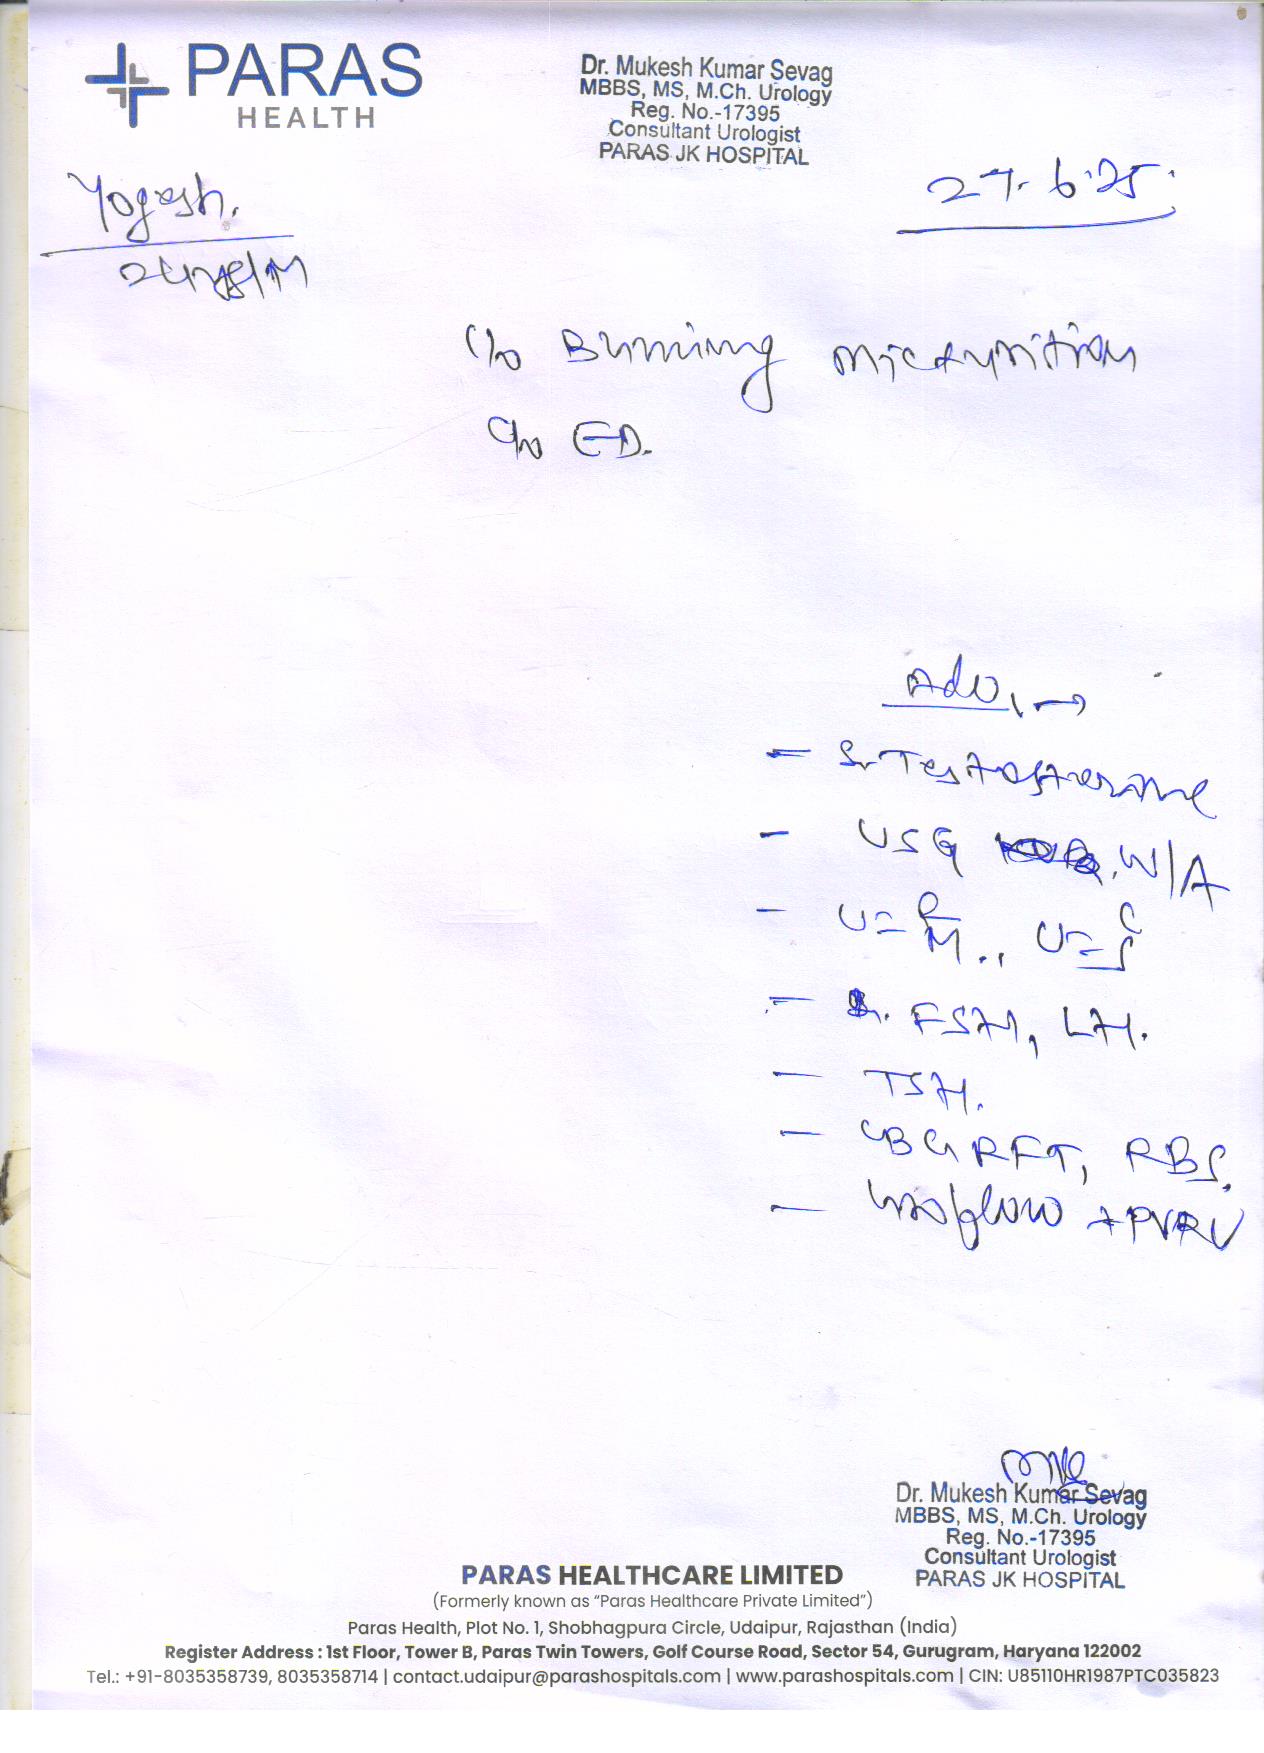 PARAS
HEALTH
Dr. Mukesh Kumar Sevag
MBBS, MS, M.Ch. Urology
Reg. No.-17395
Consultant Urologist
PARAS JK HOSPITAL
27.6.25
Yogesh.
24yrs/M
c/o Burning micturition
c/o ED.
Adv,→
- Sr Testosterone
- USG W/A
- U=R/M., U=C/S
- Sr. FSH, LH.
- TSH.
- CBC, RFT, RBS.
- Uroflow + PVRV
Dr. Mukesh Kumar Sevag
MBBS, MS, M.Ch. Urology
Reg. No.-17395
Consultant Urologist
PARAS JK HOSPITAL
PARAS HEALTHCARE LIMITED
(Formerly known as “Paras Healthcare Private Limited”)
Paras Health, Plot No. 1, Shobhagpura Circle, Udaipur, Rajasthan (India)
Register Address : 1st Floor, Tower B, Paras Twin Towers, Golf Course Road, Sector 54, Gurugram, Haryana 122002
Tel.: +91-8035358739, 8035358714 | contact.udaipur@parashospitals.com | www.parashospitals.com | CIN: U85110HR1987PTC035823